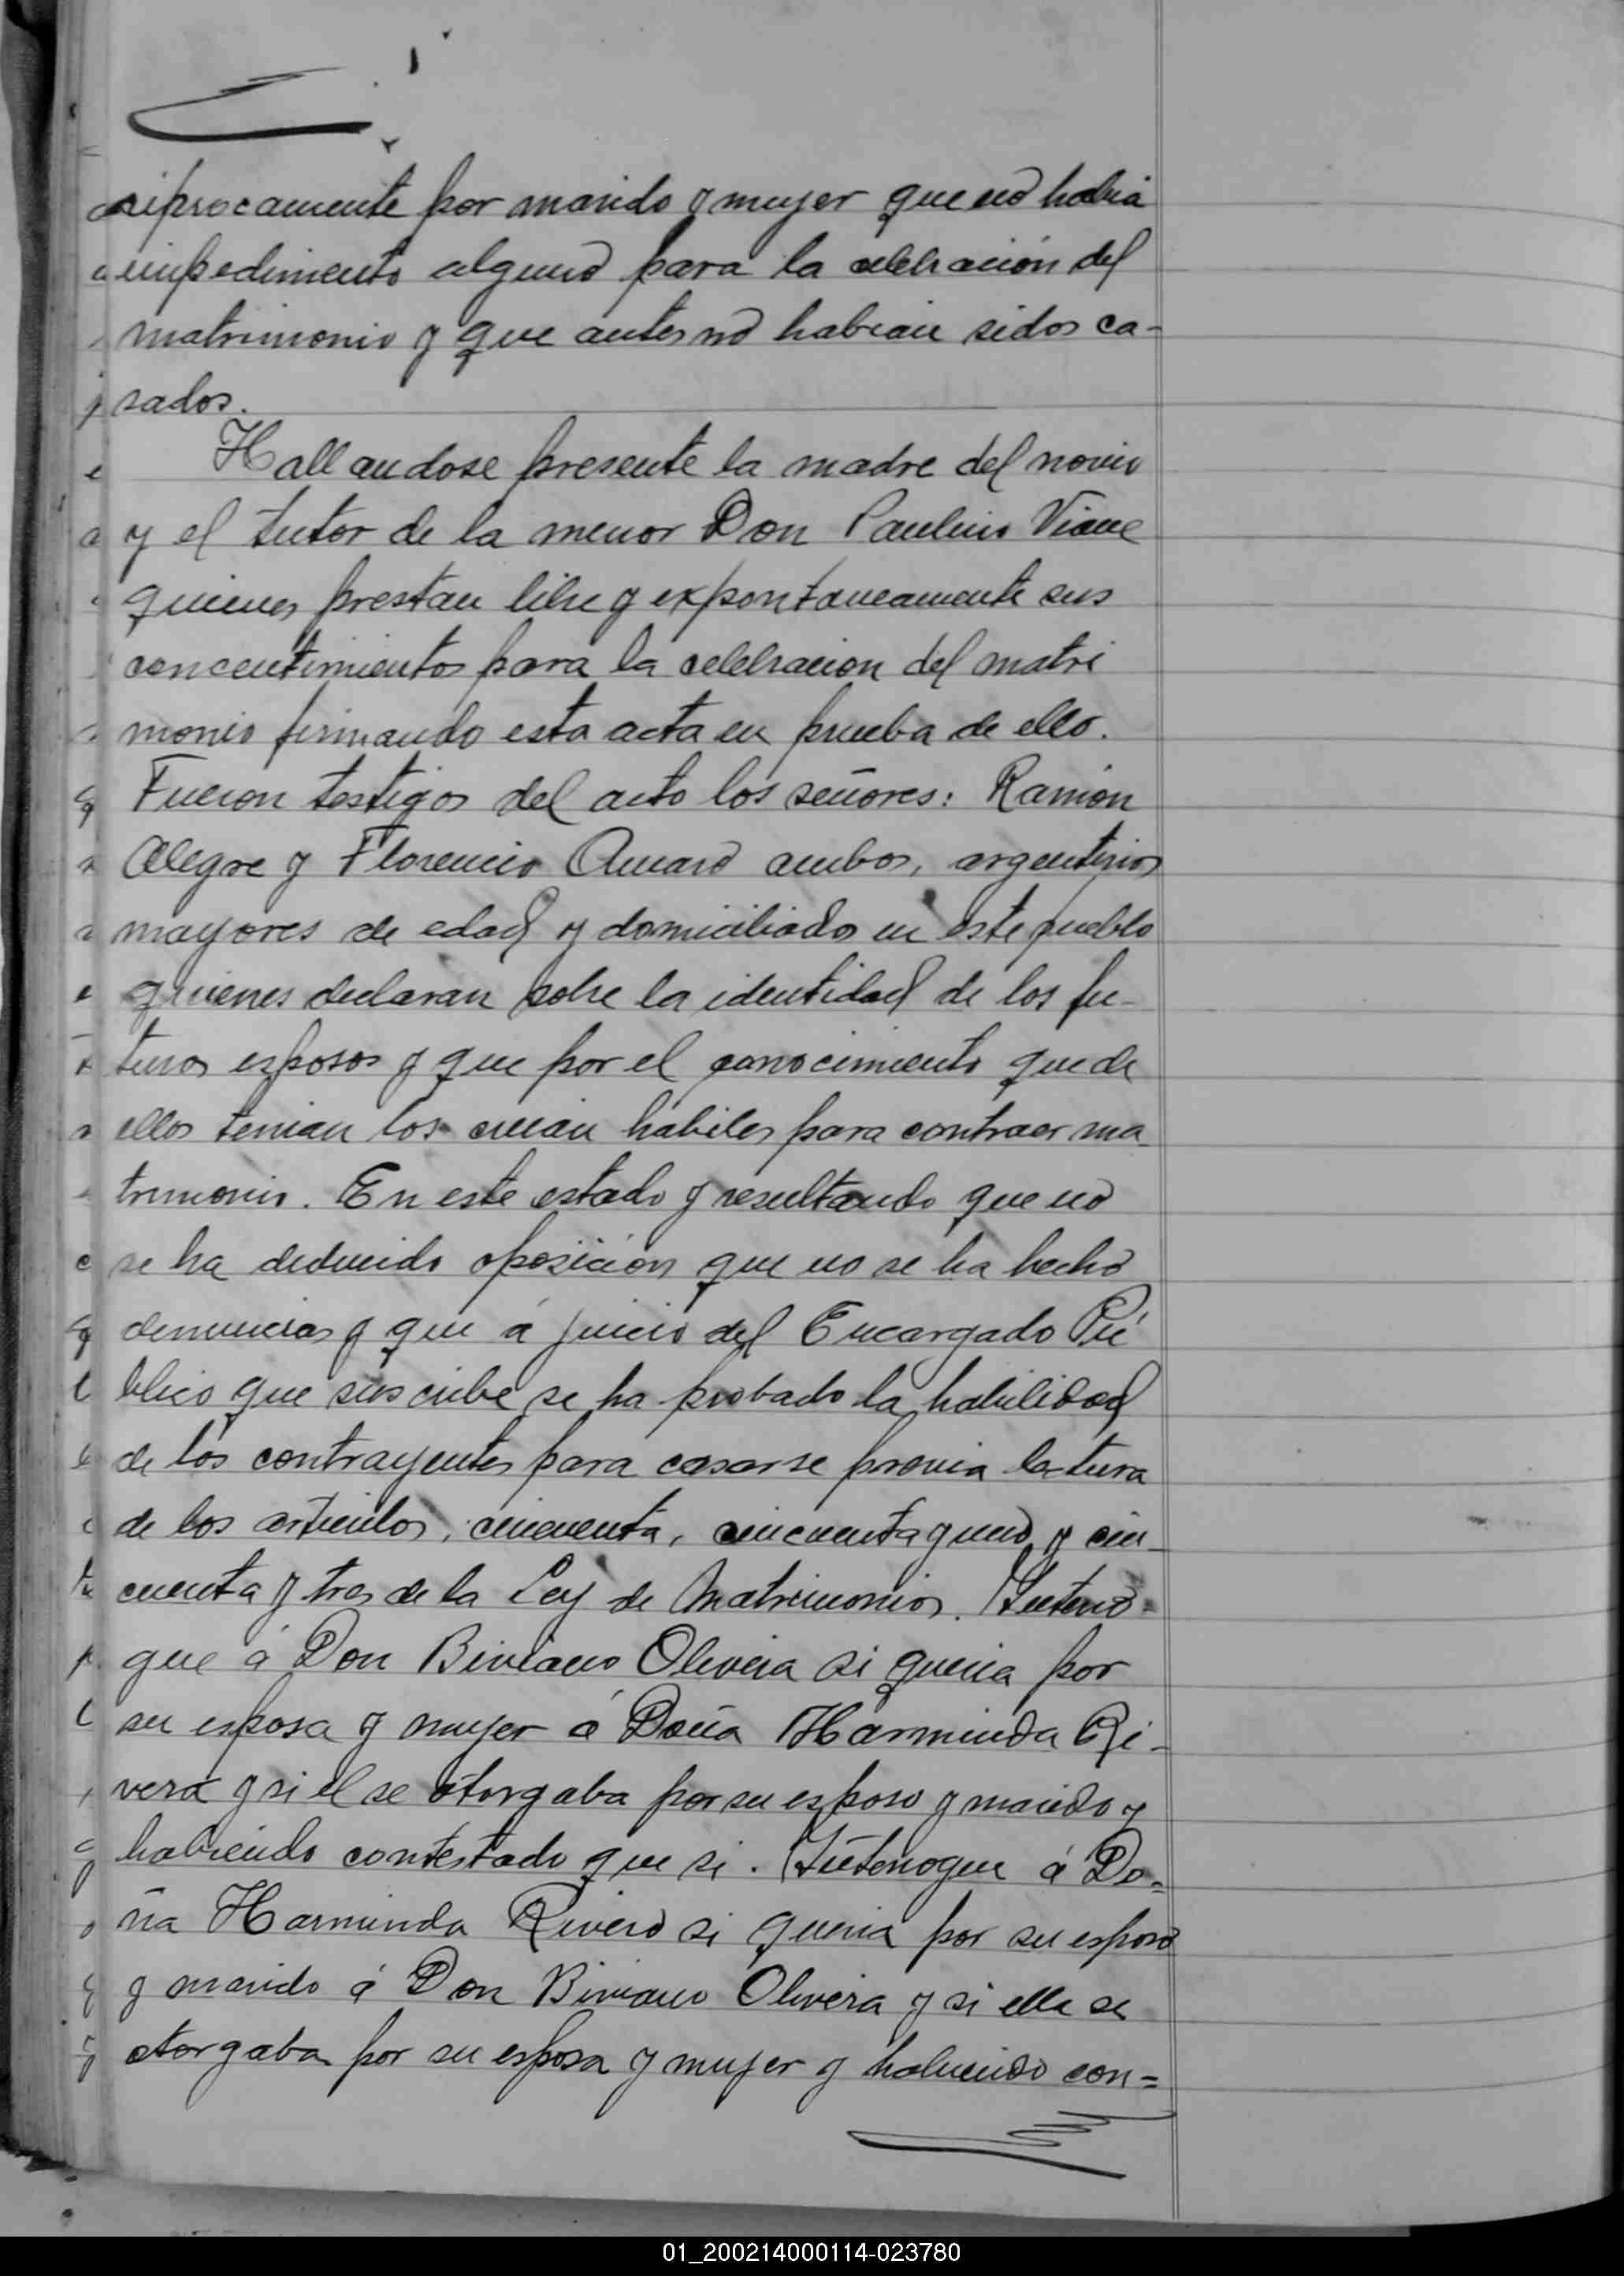 reciprocamente por marido y mujer que no habia
impedimento alguno para la celebración del
matrimonio y que antes no habian sidos ca-
sados.
Hallandose presente la madre del novio
y el tutor de la menor Don Paulino Viane
quienes prestan libre y expontaneamente sus
concentimientos para la celebracion del matri
monio firmando esta acta en prueba de ello.
Fueron testigos del acto los señores: Ramón
Alegre y Florencio Amaro ambos, argentinos
mayores de edad y domiciliados en este pueblo
quienes declaran sobre la identidad de los fu-
turos esposos y que por el conocimiento que de
ellos tenian los creian hábiles para contraer ma
trimonio. En este estado y resultando que no
se ha deducido oposición que no se ha hecho
denuncias y que á juicio del Encargado Pú
blico que suscribe se ha probado la habilidad
de los contrayentes para casarse previa lectura
de los articulos, cincuenta, cincuenta y uno y cin-
cuenta y tres de la Ley de Matrimonios. Interro-
gue á Don Biviano Olivera si queria por
su esposa y mujer á Doña Harminda Ri-
vera y si el se otorgaba por su esposo y marido y
habiendo contestado que si. Interrogue á Do=
ña Harminda Rivero si queria por su esposo
y marido á Don Biviano Olivera y si ella se
otorgaba por su esposa y mujer y habiendo con=
01_200214000114-023780